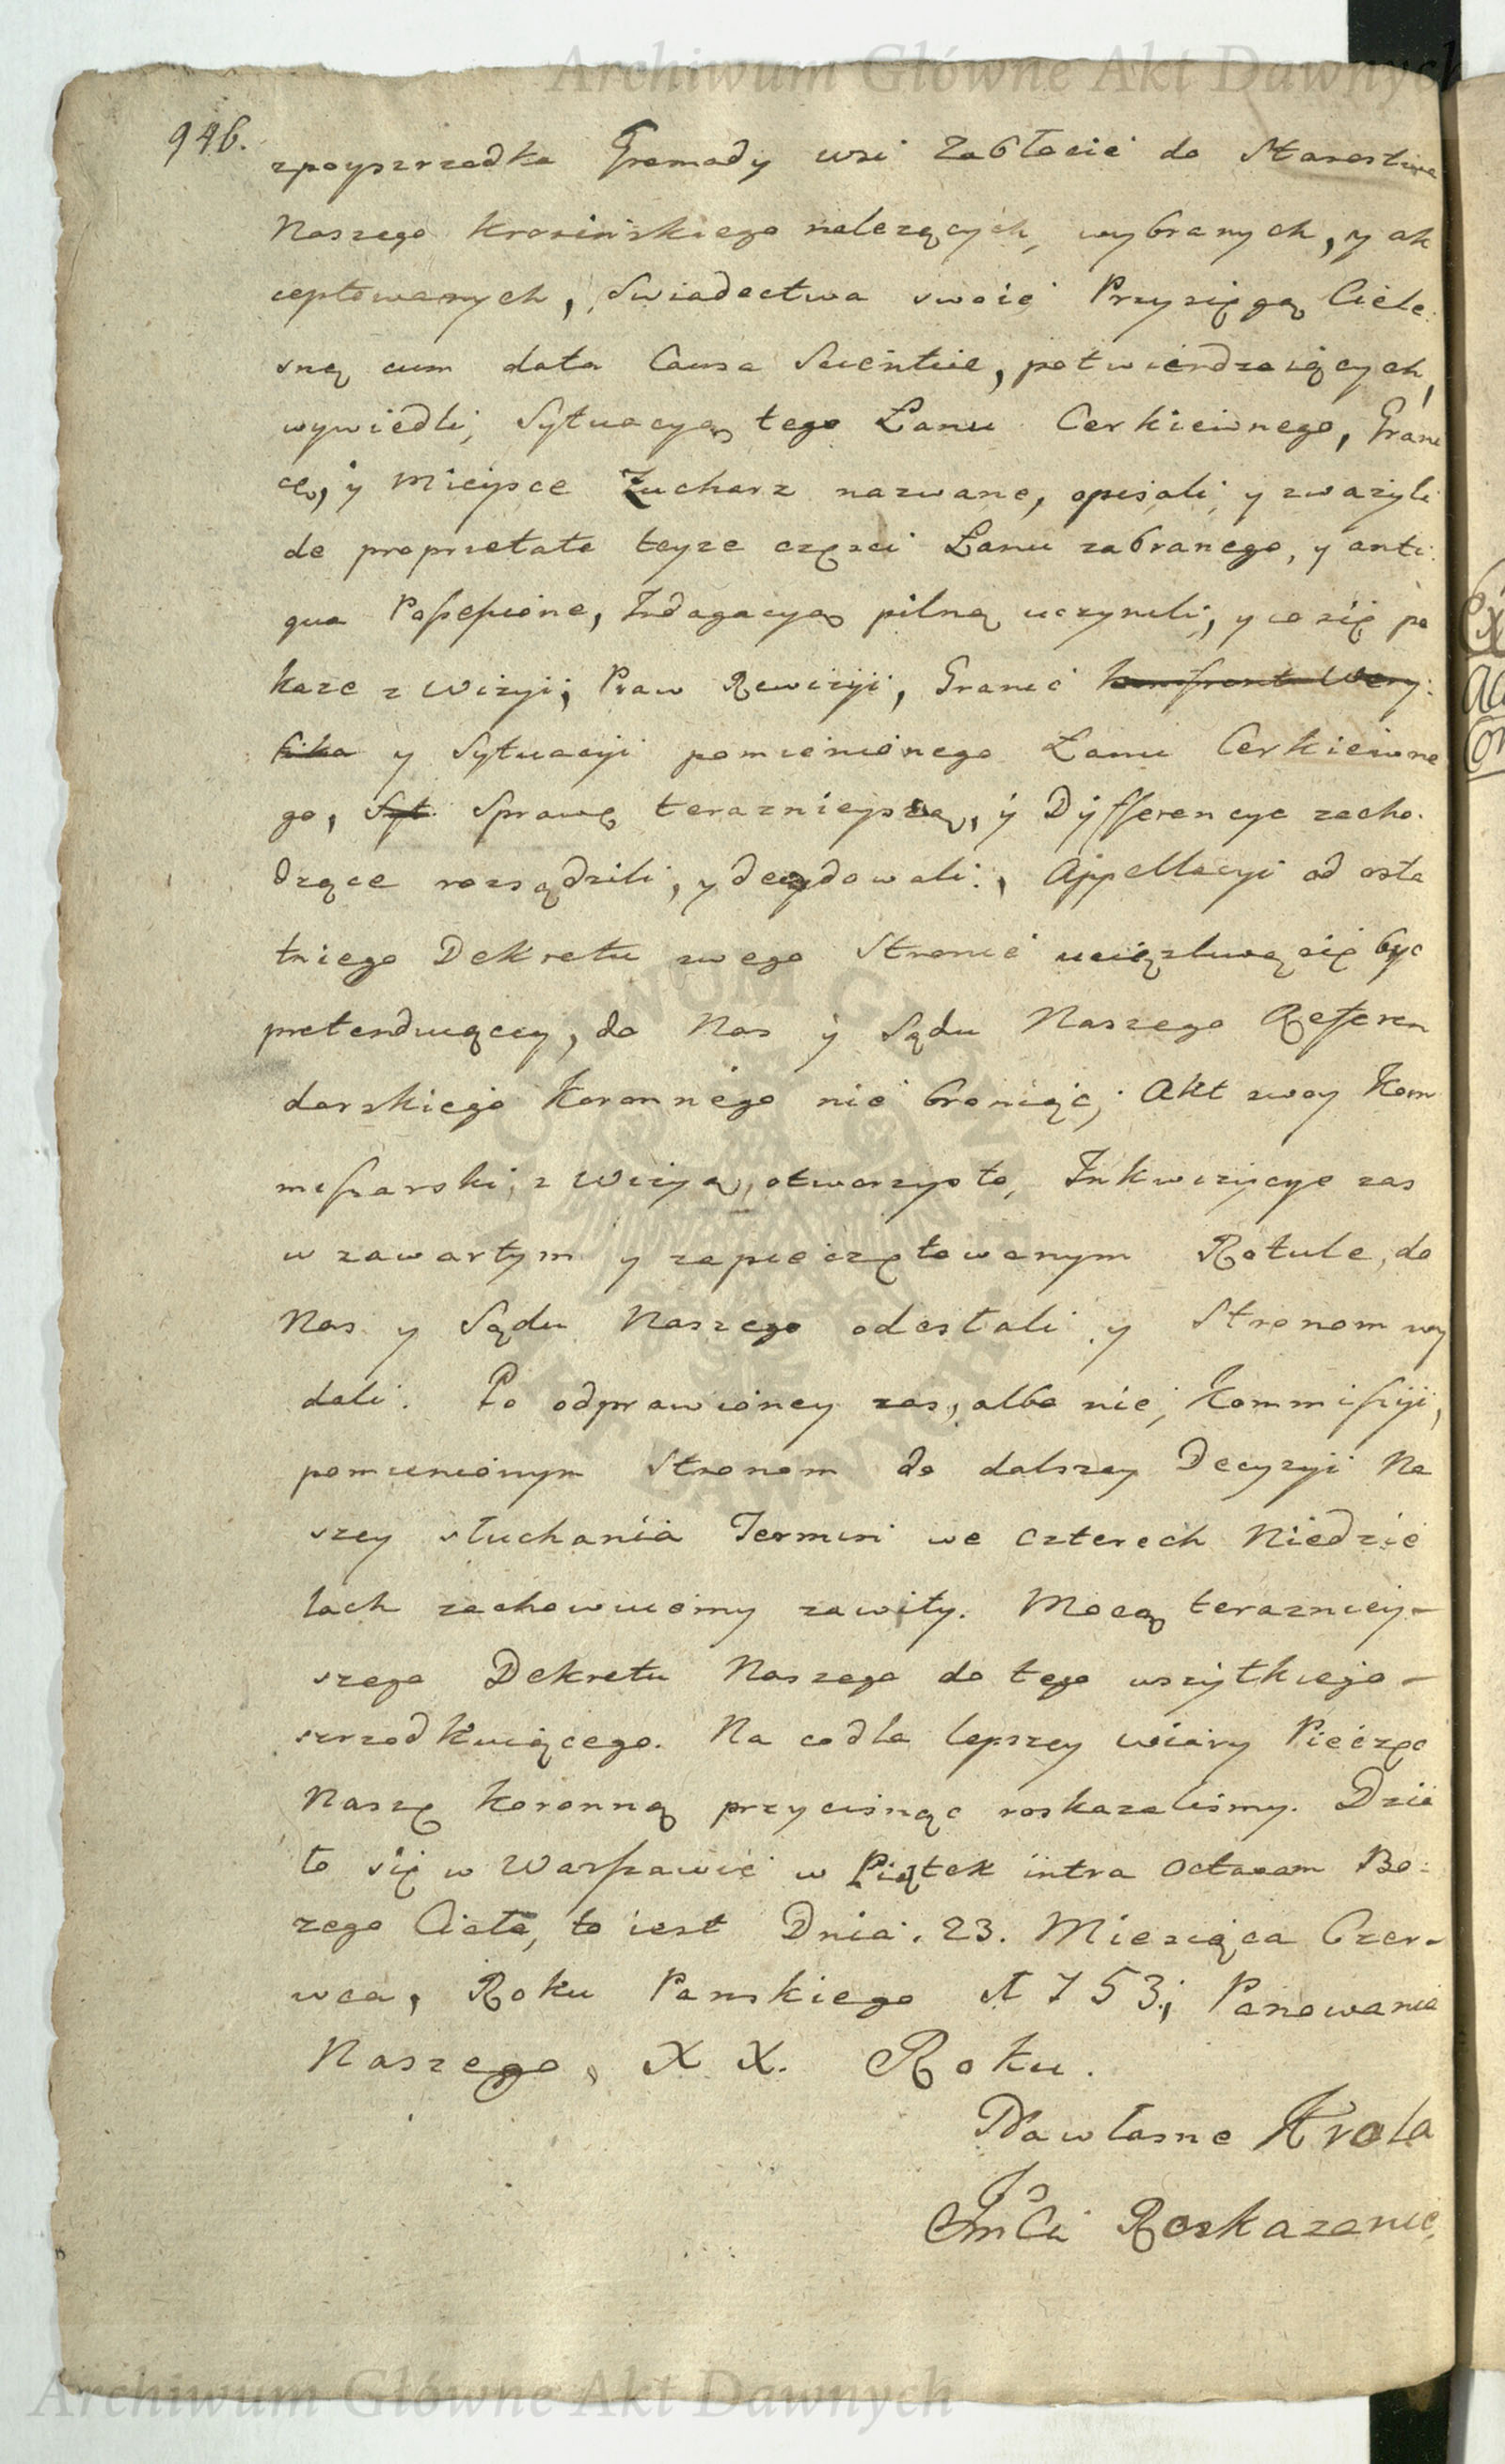 Archiwum Główne Akt Dawnych
946.
zpoyszrzodka Gromady wsi Zabłocie do Starostwa
Naszego Krosinskiego należących, wybranych, y ak
ceptowanych, Swiadectwa swoie Przysięgą Ciele:
sną cum data Causa Scientiae, potwierdzaiących,
wywiedli, Sytuacyą tego Łanu Cerkiewnego, Grani
cę, y Mieysce Zucharz nazwane, opisali, y zważyli
de proprietate teyze częsci Łanu zabranego, y anti:
qua Possessione, Indagacyą pilną uczynili, y co się po
każe z Wizyi, Praw Rewizyi, Granic
y Sytuacyi pomienionego Łanu Cerkiewne
go, Syt. Sprawę teraznieyszą, y Dyfferencye zacho.
dzące rozsądzili, y decydowali., Appellacyi od osta
tniego Dekretu swego Stronie uciązliwą się byc
pretenduiącey, do Nas y Sądu Naszego Referen
darskiego Koronnego nie broniąc, Akt swoy Kom
missarski, z Wizyą, otworzysto, Inkwizycye zas
w zawartym y zapieczętowanym Rotule, do
Nas y Sądu Naszego odesłali y Stronom wy
dali. Po odprawioney zas, albo nie, Kommissyi,
pomienionym Stronom do dalszey Decyzyi Na
szey słuchania Termin we czterech Niedzie
lach zachowuiemy zawity. Mocą terazniey-
szego Dekretu Naszego do tego wszytkiego-
szrzodkuiącego. Na co dla lepszey wiary Pieczęć
Naszę Koronną przycisnąc roskazalismy. Dzia
ło się w Warszawie w Piątek intra Octavam Bo:
żego Ciała, to iest Dnia. 23. Miesiąca Czer-
wca, Roku Panskiego 1753; Panowania
Naszego, XX. Roku.
Na własne Krola
JmCi Roskazanie.
Archiwum Główne Akt Dawnych